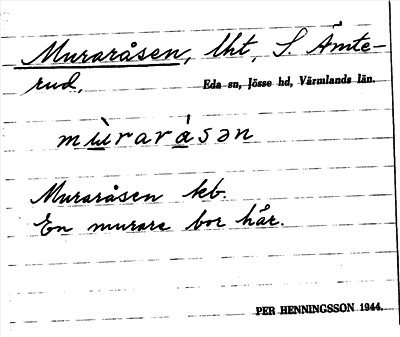 Muraråsen, lht, S. Ämte-
rud, Eda sn, Jösse hd, Värmlands län.
mùrarásən
Muraråsen kb.
En murare bor här.
PER HENNINGSSON 1944.